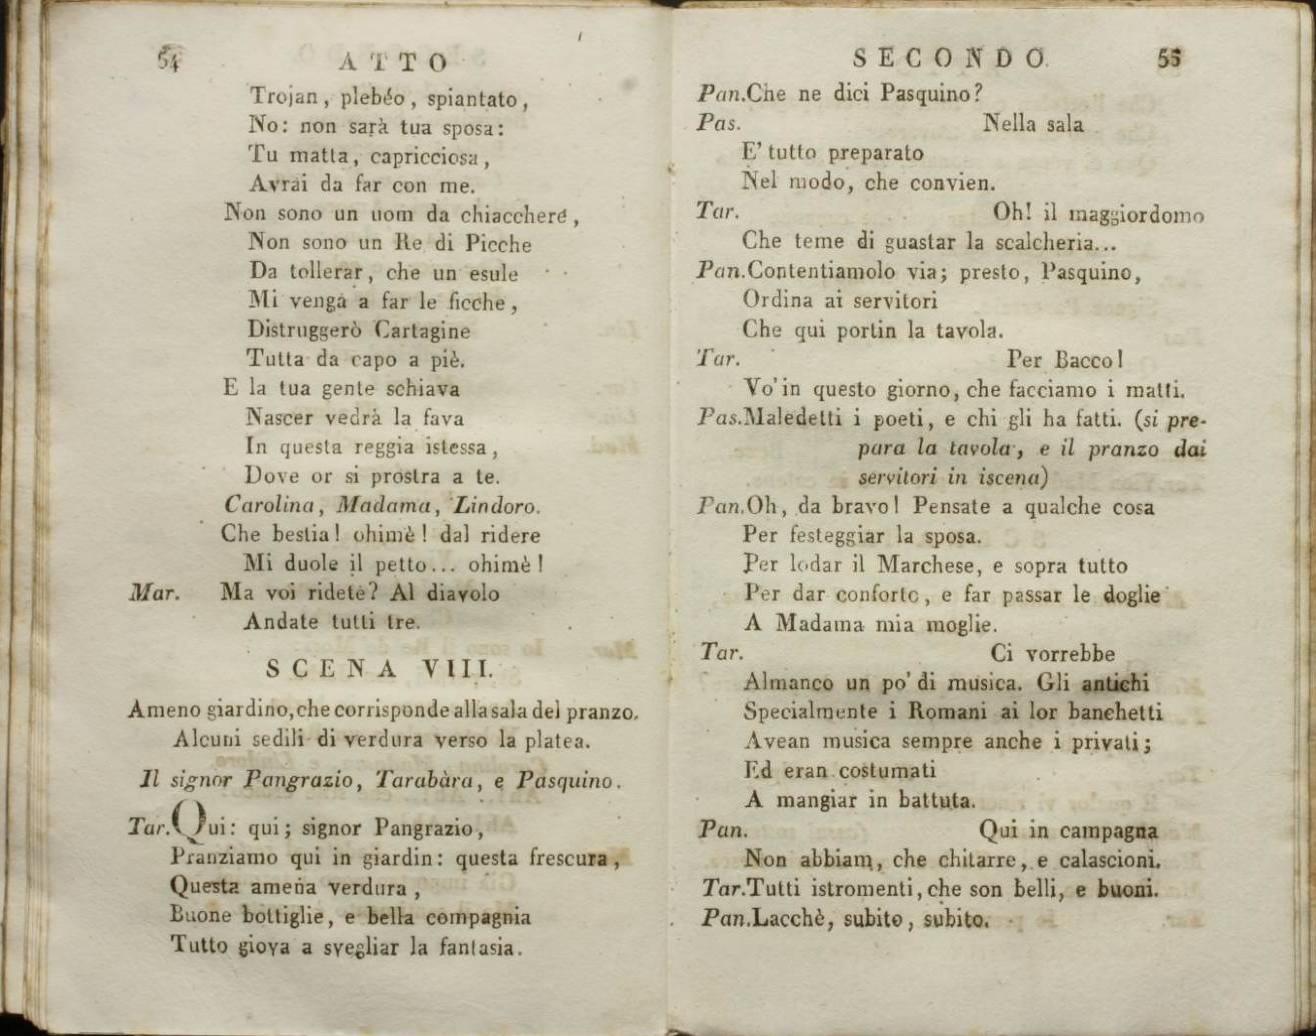 54 ATTO
Trojan, plebéo, spiantato,
No: non sarà tua sposa:
Tu matta, capricciosa,
Avrai da far con me.
Non sono un uom da chiacchere,
Non sono un Re di Picche
Da tollerar, che un esule
Mi venga a far le ficche,
Distruggerò Cartagine
Tutta da capo a piè.
E la tua gente schiava
Nascer vedrà la fava
In questa reggia istessa,
Dove or si prostra a te.
Carolina, Madama, Lindoro.
Che bestia! ohimè! dal ridere
Mi duole il petto... ohimè!
Mar. Ma voi ridete? Al diavolo
Andate tutti tre.
SCENA VIII.
Ameno giardino, che corrisponde alla sala del pranzo.
Alcuni sedili di verdura verso la platea.
Il signor Pangrazio, Tarabàra, e Pasquino.
Tar. Qui: qui; signor Pangrazio,
Pranziamo qui in giardin: questa frescura,
Questa amena verdura,
Buone bottiglie, e bella compagnia
Tutto giova a svegliar la fantasia.
SECONDO. 55
Pan. Che ne dici Pasquino?
Pas. Nella sala
E' tutto preparato
Nel modo, che convien.
Tar. Oh! il maggiordomo
Che teme di guastar la scalcheria...
Pan. Contentiamolo via; presto, Pasquino,
Ordina ai servitori
Che qui portin la tavola.
Tar. Per Bacco!
Vo' in questo giorno, che facciamo i matti.
Pas. Maledetti i poeti, e chi gli ha fatti. (si pre-
para la tavola, e il pranzo dai
servitori in iscena)
Pan. Oh, da bravo! Pensate a qualche cosa
Per festeggiar la sposa.
Per lodar il Marchese, e sopra tutto
Per dar conforto, e far passar le doglie
A Madama mia moglie.
Tar. Ci vorrebbe
Almanco un po' di musica. Gli antichi
Specialmente i Romani ai lor banchetti
Avean musica sempre anche i privati;
Ed eran costumati
A mangiar in battuta.
Pan. Qui in campagna
Non abbiam, che chitarre, e calascioni.
Tar. Tutti istromenti, che son belli, e buoni.
Pan. Lacchè, subito, subito.